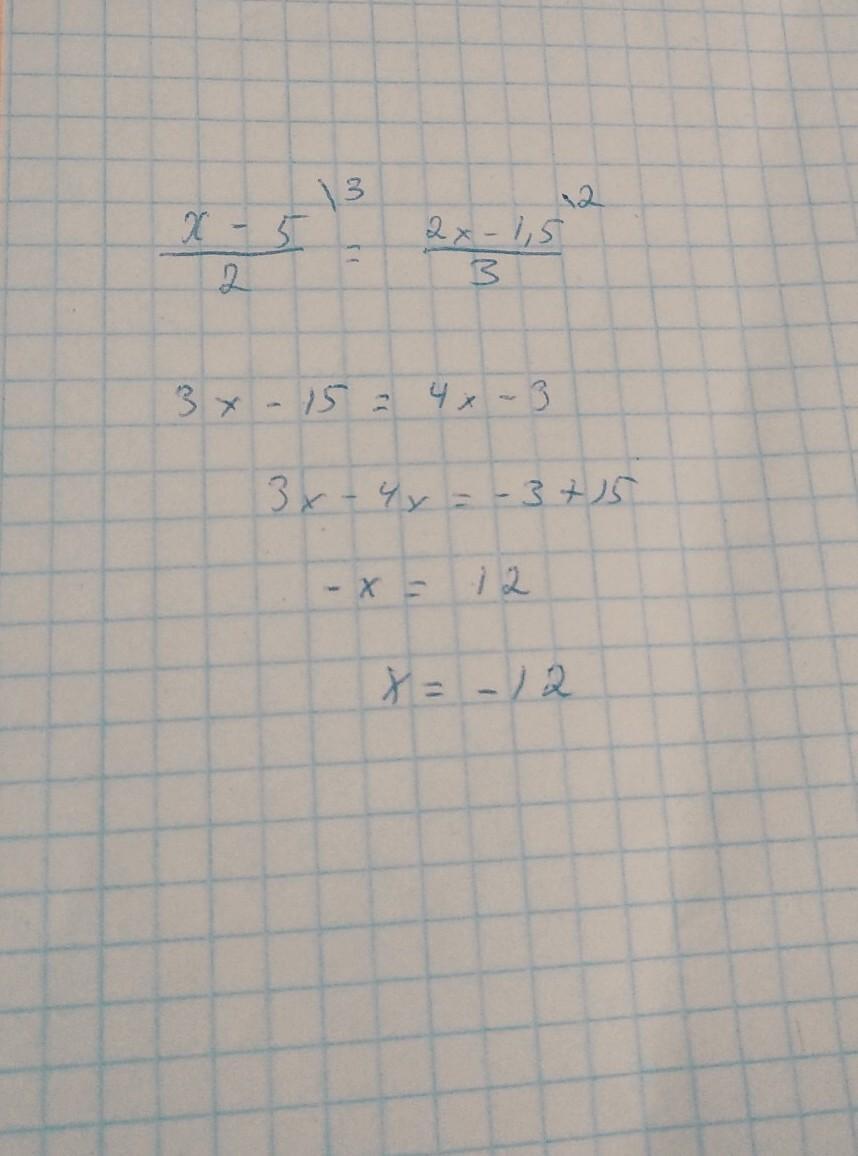 x - 5 \3 = 2x - 1,5 \2
2 3
3x - 15 = 4x - 3
3x - 4x = -3 + 15
-x = 12
x = -12